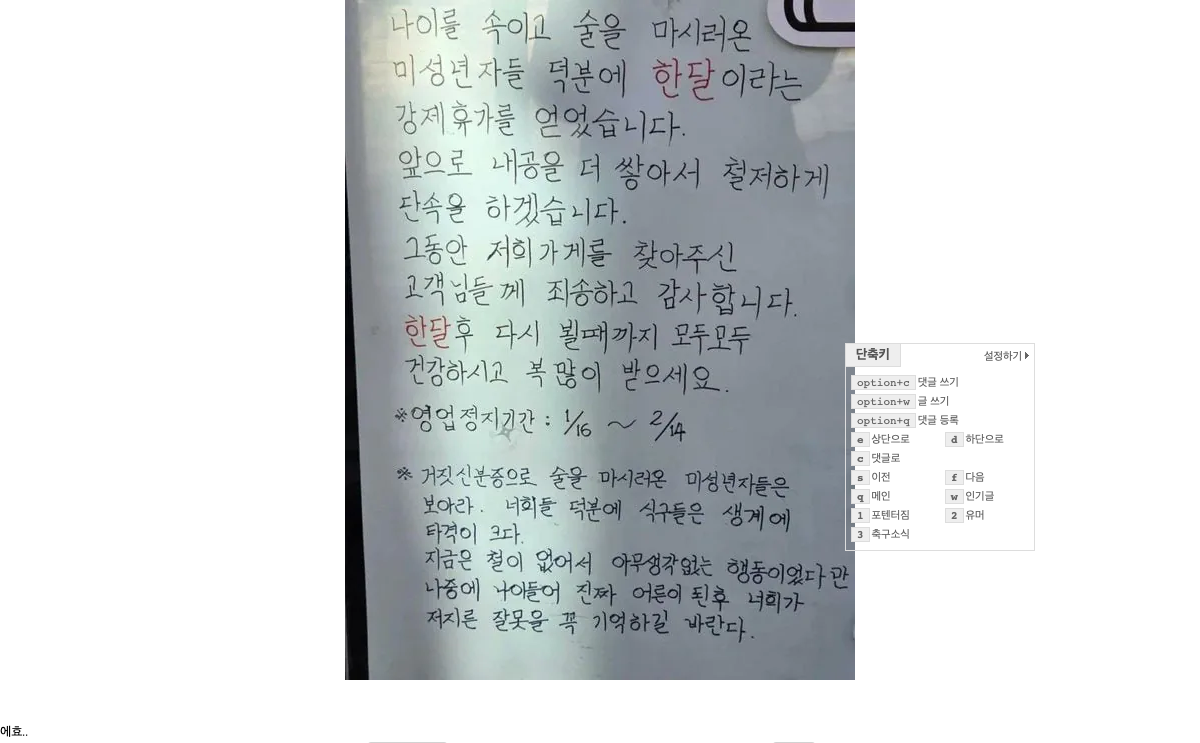 나이를 속이고 술을 마시러온
미성년자들 덕분에 한달이라는
강제휴가를 얻었습니다.
앞으로 내공을 더 쌓아서 철저하게
단속을 하겠습니다.
그동안 저희가게를 찾아주신
고객님들께 죄송하고 감사합니다.
한달후 다시 뵐때까지 모두모두
건강하시고 복많이 받으세요.
※영업정지기간 : 1/16 ~ 2/14
※ 거짓신분증으로 술을 마시러온 미성년자들은
보아라. 너희들 덕분에 식구들은 생계에
타격이 크다.
지금은 철이 없어서 아무생각없는 행동이었다만
나중에 나이들어 진짜 어른이 된후 너희가
저지른 잘못을 꼭 기억하길 바란다.
단축키 설정하기
option+c 댓글 쓰기
option+w 글 쓰기
option+q 댓글 등록
e 상단으로 d 하단으로
c 댓글로
s 이전 f 다음
q 메인 w 인기글
1 포텐터짐 2 유머
3 축구소식
에효..